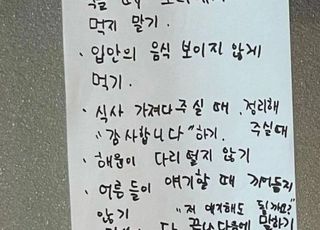 먹지 말기.
· 입안의 음식 보이지 않게
먹기.
· 식사 가져다주실 때, 정리해
주실때
"감사합니다"하기.
· 해윤이 다리 떨지 않기
· 어른들이 얘기할 때 끼어들지
않기 "저 얘기해도 될까요?"
다 끝난다음에 말하기